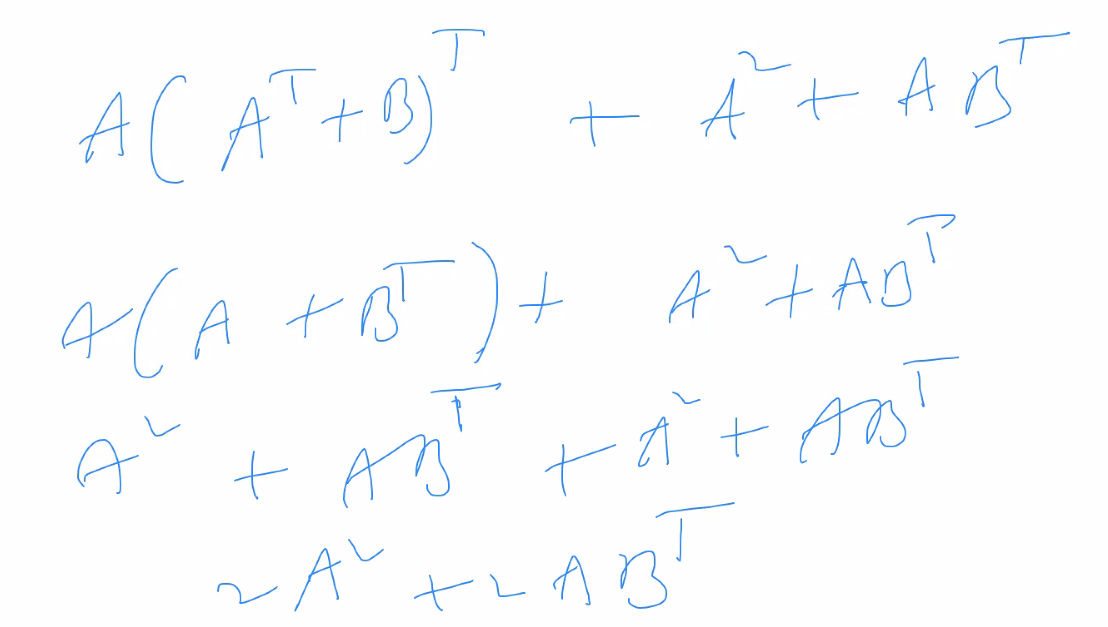 A(A^T + B)^T + A^2 + AB^T
A(A + B^T) + A^2 + AB^T
A^2 + AB^T + A^2 + AB^T
2A^2 + 2AB^T